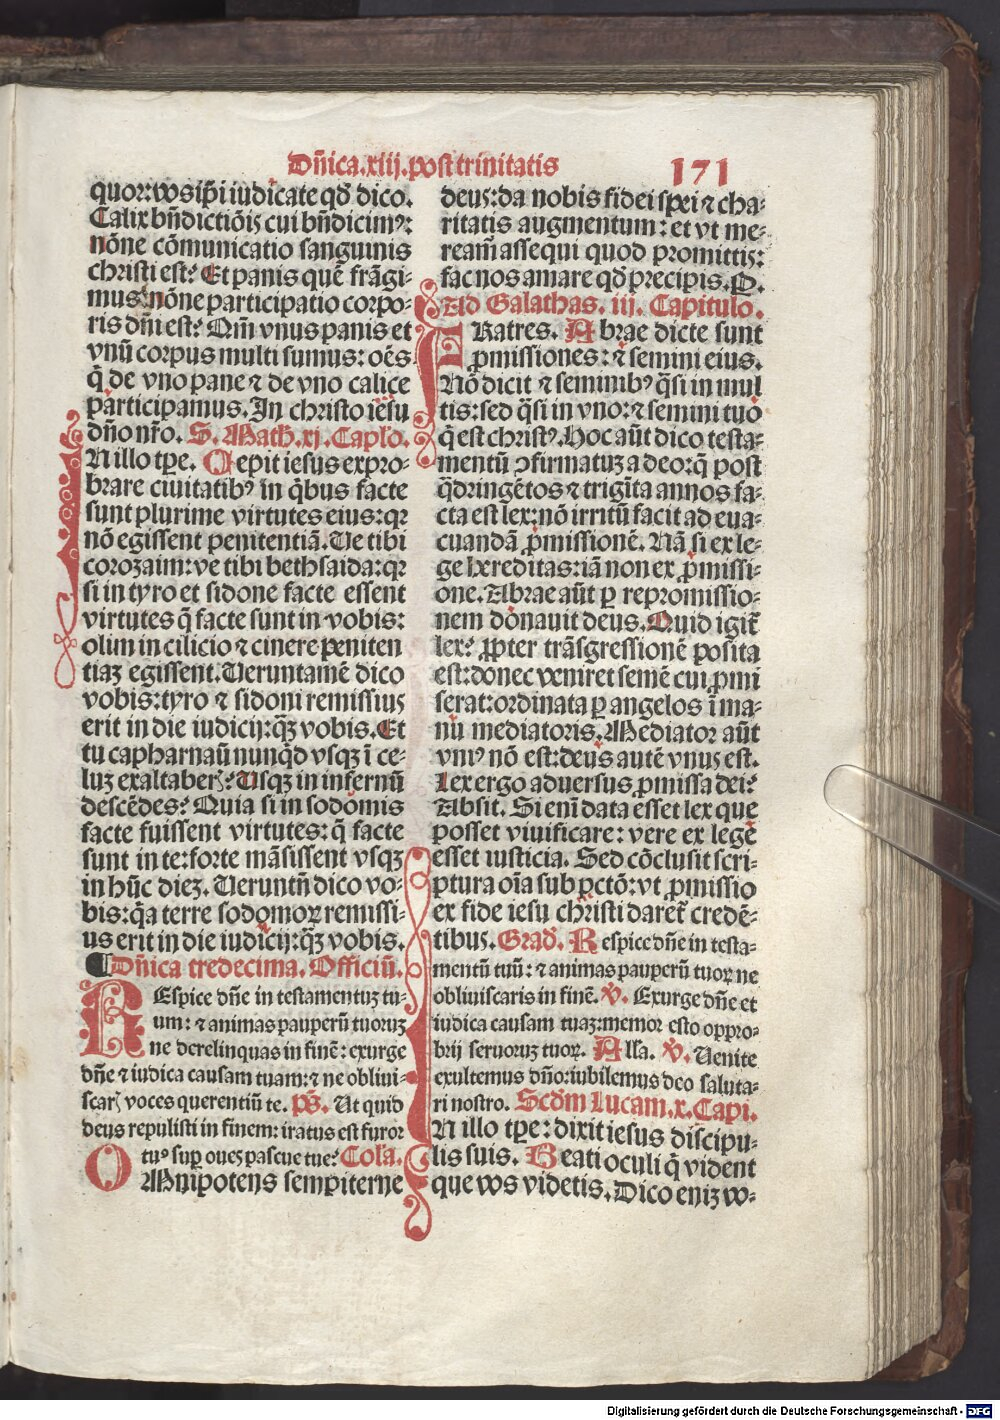 Dñica.xiij.post trinitatis
171
quor:vos ip̄i iudicate qd̄ dico.
Calix bñdictiōis cui bñdicimꝰ:
nōne cōmunicatio sanguinis
christi est? Et panis quē frāgi-
mus nōne participatio corpo-
ris dñi est? Qm̄ vnus panis et
vnū corpus multi sumus: oēs
q̄ de vno pane ⁊ de vno calice
participamus. In christo iesu
dño nr̄o. S. Math. xj. Capl'o.
IN illo tp̄e. Cepit iesus expro-
brare ciuitatibꝰ in q̄bus facte
sunt plurime virtutes eius:qꝛ
nō egissent penitentiā. Ue tibi
corozaim: ve tibi bethsaida: qꝛ
si in tyro et sidone facte essent
virtutes q̄ facte sunt in vobis:
olim in cilicio ⁊ cinere peniten
tiaꝫ egissent. Ueruntamē dico
vobis: tyro ⁊ sidoni remissius
erit in die iudicij: qꝫ vobis. Et
tu capharnaū nunqd̄ vsqꝫ ī ce-
luꝫ exaltaberꝭ? Usqꝫ in infernū
descēdes? Quia si in sodomis
facte fuissent virtutes: q̄ facte
sunt in te: forte māsissent vsqꝫ
in hūc dieꝫ. Ueruntñ dico vo-
bis: qa terre sodomoꝝ remissi-
us erit in die iudicij: qꝫ vobis.
¶ Dñica tredecima. Officiū.
REspice dñe in testamentuꝫ tu-
um: ⁊ animas pauperū tuoruꝫ
ne derelinquas in finē: exurge
dñe ⁊ iudica causam tuam: ⁊ ne obliui-
scarꝭ voces querentiū te. ps̄. Ut quid
deus repulisti in finem: iratus est furor
tuꝰ suꝑ oues pascue tue? Col'a.
OMnipotens sempiterne
deus: da nobis fidei spei ⁊ cha-
ritatis augmentum: et vt me-
reaḿ assequi quod promittis:
fac nos amare qd̄ precipis. P.
Ad Galathas. iij. Capitulo.
FRatres. Abrae dicte sunt
ꝓmissiones: ⁊ semini eius.
Nō dicit ⁊ seminibꝰ q̄si in mul
tis: sed q̄si in vno: ⁊ semini tuo
q̄ est christꝰ. Hoc aūt dico testa-
mentū ꝯfirmatuꝫ a deo: q̄ post
q̄dringētos ⁊ trigīta annos fa-
cta est lex: nō irritū facit ad eua-
cuandā ꝓmissionē. Nā si ex le-
ge hereditas: iā non ex ꝓmissi-
one. Abrae aūt ꝑ repromissio-
nem donauit deus. Quid igit̄
lex? ꝓpter trāsgressionē posita
est: donec veniret semē cui ꝓmi
serat: ordinata ꝑ angelos ī ma-
nu mediatoris. Mediator aūt
vniꝰ nō est: deus autē vnus est.
Lex ergo aduersus ꝓmissa dei?
Absit. Si enī data esset lex que
posset viuificare: vere ex lege
esset iusticia. Sed cōclusit scri-
ptura oīa sub pctō: vt ꝓmissio
ex fide iesu christi daret̄ credē-
tibus. Grad̄. Respice dñe in testa-
mentū tuū: ⁊ animas pauperū tuoꝝ ne
obliuiscaris in finē. ℣. Exurge dñe et
iudica causam tuaꝫ: memor esto oppro-
brij seruoruꝫ tuoꝝ. All'a. ℣. Uenite
exultemus dño: iubilemus deo saluta-
ri nostro. Scd̄m Lucam. x. Capi.
IN illo tp̄e: dixit iesus discipu-
lis suis. Beati oculi q̄ vident
que vos videtis. Dico eniꝫ vo-
Digitalisierung gefördert durch die Deutsche Forschungsgemeinschaft - DFG